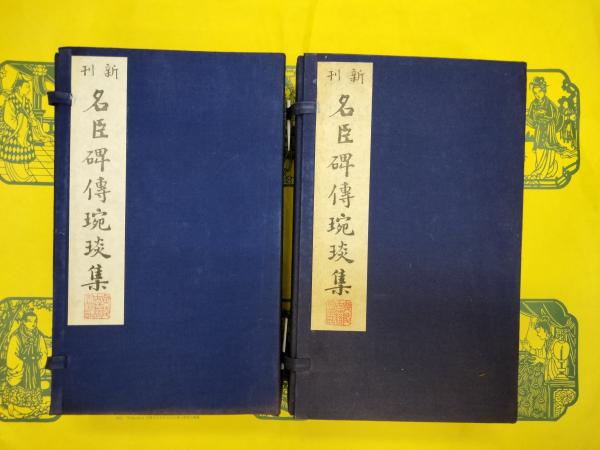 新刊
名臣碑傳琬琰集
新刊
名臣碑傳琬琰集